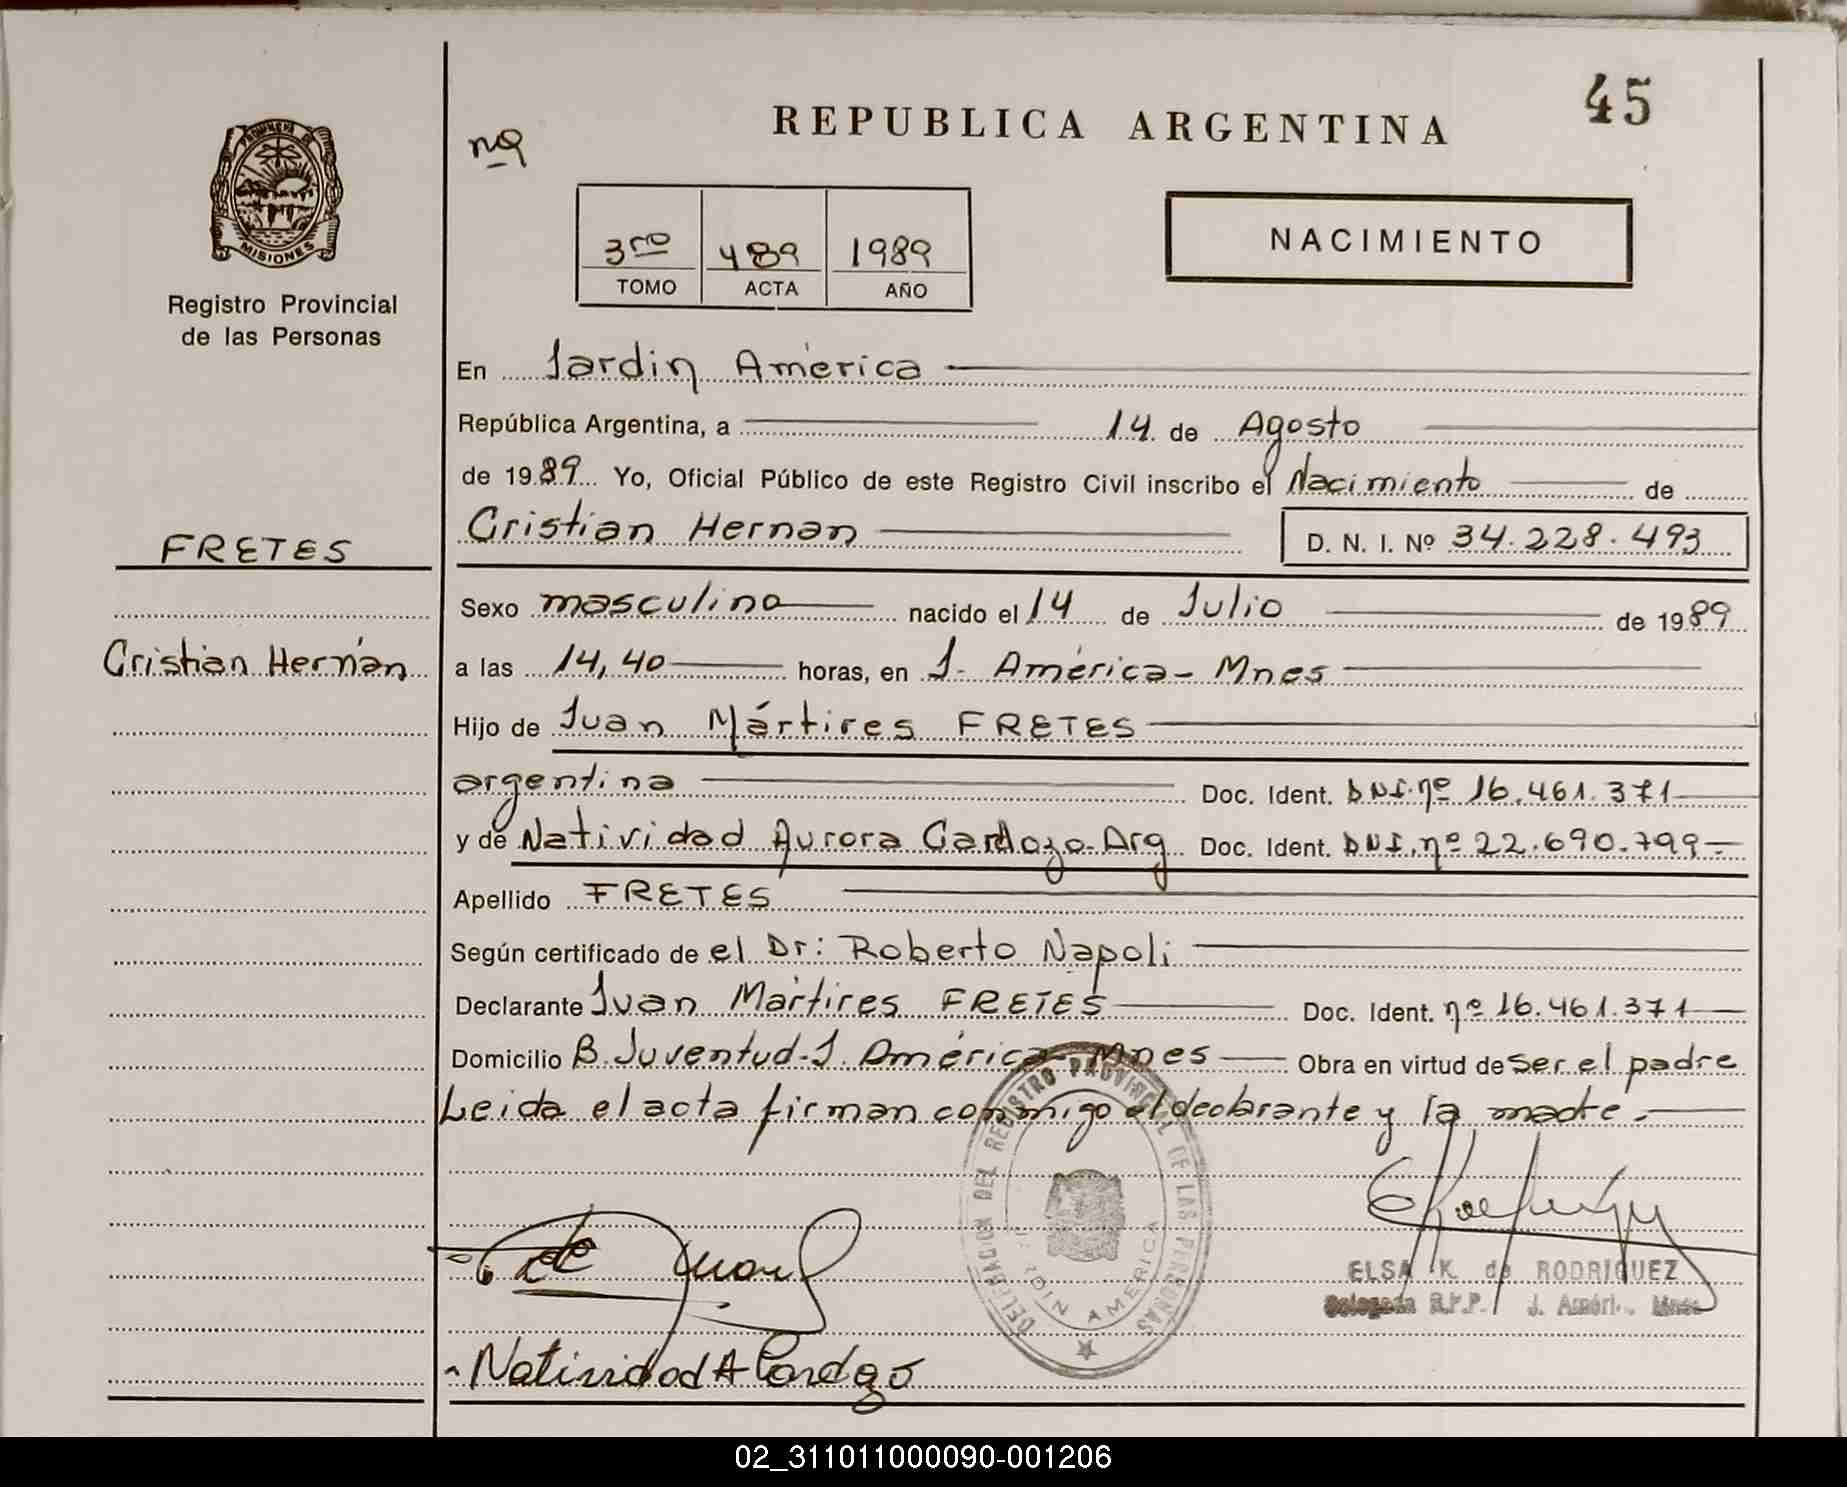 45
REPUBLICA ARGENTINA
nº
PROVINCIA DE
MISIONES
Registro Provincial
de las Personas
3ro 489 1989
TOMO ACTA AÑO
NACIMIENTO
En Jardin América
República Argentina, a 14 de Agosto
de 1989 Yo, Oficial Público de este Registro Civil inscribo el Nacimiento de
Cristian Hernan D. N. I. Nº 34.228.493
FRETES
Sexo masculino nacido el 14 de Julio de 1989
Cristian Hernán
a las 14,40 horas, en J. América - Mnes
Hijo de Juan Mártires FRETES
argentina Doc. Ident. DNI. nº 16.461.371
y de Natividad Aurora Cardozo-Arg Doc. Ident. DNI. nº 22.690.799
Apellido FRETES
Según certificado de el Dr: Roberto Napoli
Declarante Juan Mártires FRETES Doc. Ident. nº 16.461.371
Domicilio B. Juventud-J. América-Mnes Obra en virtud de ser el padre
Leida el acta firman conmigo el declarante y la madre.-
DELEGACION DEL REGISTRO PROVINCIAL DE LAS PERSONAS
JARDIN AMERICA
ELSA K. de RODRIGUEZ
Delegada R.P.P. J. Améri. Mnes
Natividad A Cardozo
02_311011000090-001206